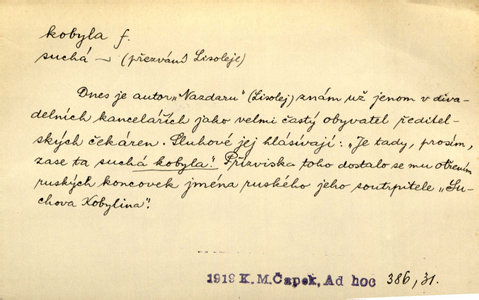 kobyla f.
suchá ~ (přezvání Lisoleje)
Dnes je autor „Nazdaru" (Lisolej) znám už jenom v diva-
delních kancelářích jako velmi častý obyvatel ředitel-
ských čekáren. Sluhové jej hlásívají: „Je tady, prosím,
zase ta suchá kobyla." Přízviska toho dostalo se mu otřením
ruských koncovek jména ruského jeho soutrpitele „Su-
chova Kobylina".
1919 K. M. Čapek, Ad hoc 386, 31.